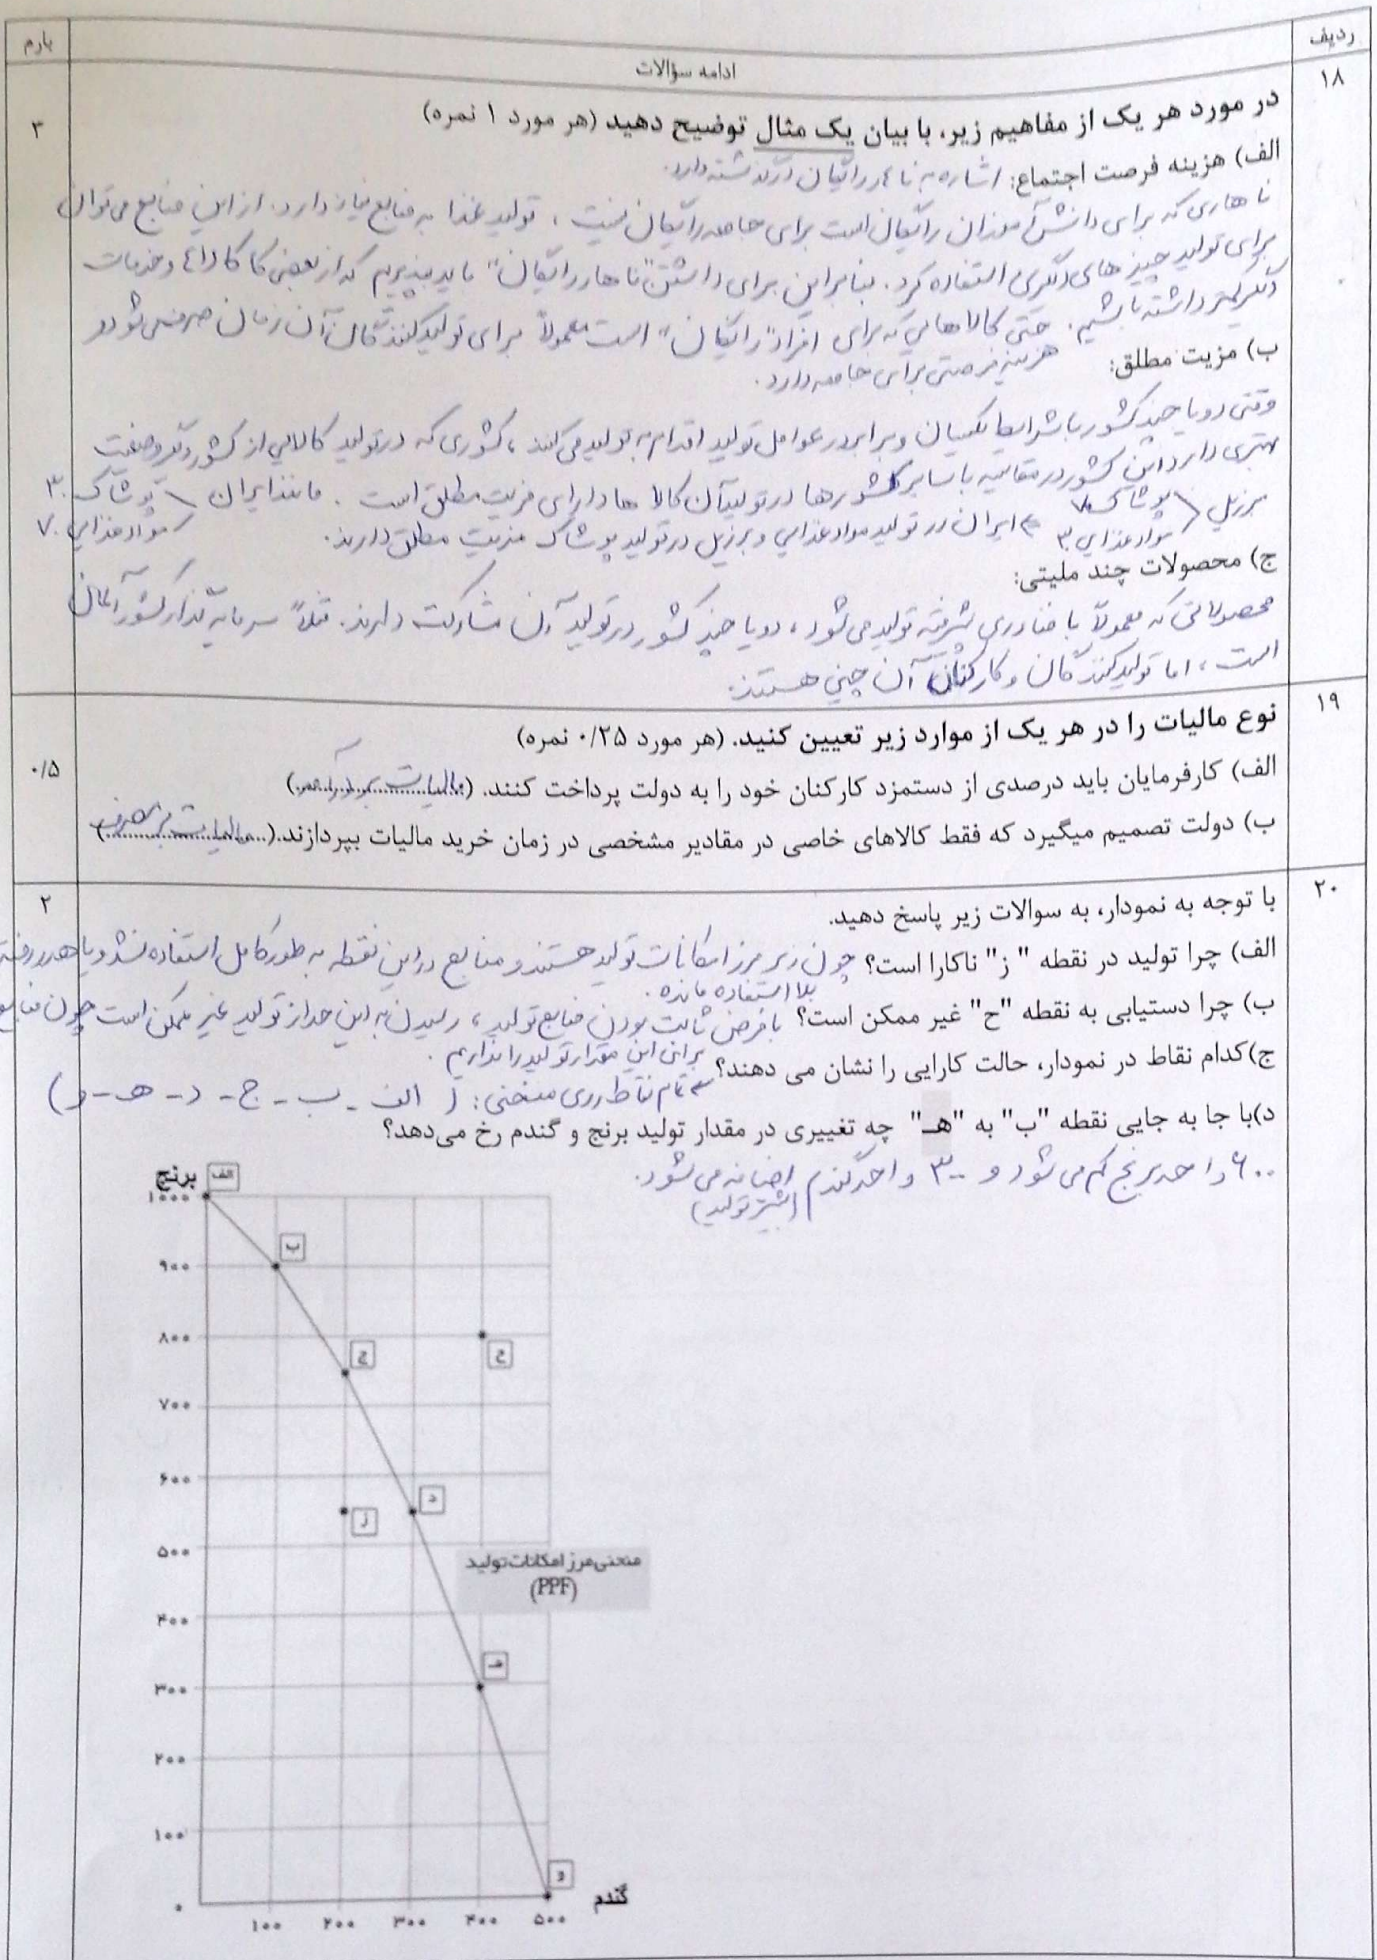 ردیف
بارم
ادامه سؤالات
۱۸
۳
در مورد هر یک از مفاهیم زیر، با بیان یک مثال توضیح دهید (هر مورد ۱ نمره)
الف) هزینه فرصت اجتماع: اشاره به ناهار رایگان در گذشته دارد.
ناهاری که برای دانش آموزان رایگان است برای جامعه رایگان نیست، تولید غذا به منابع نیاز دارد. از این منابع می توان
برای تولید چیزهای دیگری استفاده کرد. بنابراین برای داشتن "ناهار رایگان" باید بپذیریم که از بعضی کالاها و خدمات
دیگر کمتر داشته باشیم. حتی کالاهایی که برای افراد "رایگان" است معمولاً برای تولیدکنندگان آن زمان صرف می شود و
هزینه فرصتی برای جامعه دارد.
ب) مزیت مطلق:
وقتی دو یا چند کشور با شرایط یکسان و برابر در عوامل تولید اقدام به تولید می کنند، کشوری که در تولید کالایی از کشور دیگر وضعیت
بهتری دارد این کشور در مقایسه با سایر کشورها در تولید آن کالا ها دارای مزیت مطلق است. مانند ایران پوشاک ۳۰
مواد غذایی ۷۰
برزیل پوشاک ۷۰
مواد غذایی ۳۰ ⇐ ایران در تولید مواد غذایی و برزیل در تولید پوشاک مزیت مطلق دارند.
ج) محصولات چند ملیتی:
محصولاتی که معمولاً با فناوری پیشرفته تولید می شود، دو یا چند کشور در تولید آن مشارکت دارند. مثلاً سرمایه گذار کشور آلمان
است، اما تولیدکنندگان و کارکنان آن چینی هستند.
۱۹
۰/۵
نوع مالیات را در هر یک از موارد زیر تعیین کنید. (هر مورد ۰/۲۵ نمره)
الف) کارفرمایان باید درصدی از دستمزد کارکنان خود را به دولت پرداخت کنند. (مالیات بر درآمد)
ب) دولت تصمیم میگیرد که فقط کالاهای خاصی در مقادیر مشخصی در زمان خرید مالیات بپردازند.(مالیات بر مصرف)
۲۰
۲
با توجه به نمودار، به سوالات زیر پاسخ دهید.
الف) چرا تولید در نقطه " ز" ناکارا است؟ چون زیر مرز امکانات تولید هستند و منابع در این نقطه به طور کامل استفاده نشد و یا هدر رفته
بلا استفاده مانده.
ب) چرا دستیابی به نقطه "ح" غیر ممکن است؟ با فرض ثابت بودن منابع تولید، رسیدن به این حد از تولید غیر ممکن است چون منابع
برای این مقدار تولید را نداریم.
ج)کدام نقاط در نمودار، حالت کارایی را نشان می دهند؟ تمام نقاط روی منحنی: ( الف - ب - ج - د - هـ - و)
د)با جا به جایی نقطه "ب" به "هـ" چه تغییری در مقدار تولید برنج و گندم رخ می‌دهد؟
۶۰۰ واحد برنج کم می شود و ۳۰۰ واحد گندم اضافه می شود.
(بیشتر تولید)
برنج
الف
۱۰۰۰
ب
۹۰۰
۸۰۰
ح
ج
۷۰۰
۶۰۰
د
ز
۵۰۰
منحنی مرز امکانات تولید
(PPF)
۴۰۰
هـ
۳۰۰
۲۰۰
۱۰۰
و
گندم
۰
۱۰۰ ۲۰۰ ۳۰۰ ۴۰۰ ۵۰۰